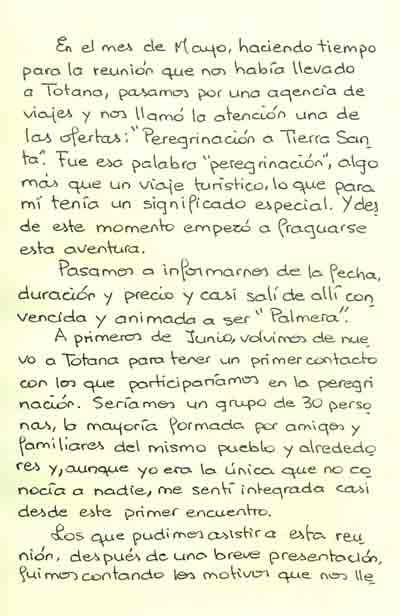 En el mes de Mayo, haciendo tiempo
para la reunión que nos había llevado
a Totana, pasamos por una agencia de
viajes y nos llamó la atención una de
las ofertas: "Peregrinación a Tierra San
ta". Fue esa palabra "peregrinación", algo
más que un viaje turístico, lo que para
mí tenía un significado especial. Y des
de este momento empezó a fraguarse
esta aventura.
Pasamos a informarnos de la fecha,
duración y precio y casi salí de allí con
vencida y animada a ser "Palmera".
A primeros de Junio, volvimos de nue
vo a Totana para tener un primer contacto
con los que participaríamos en la peregri
nación. Seríamos un grupo de 30 perso
nas, la mayoría formada por amigos y
familiares del mismo pueblo y alrededo
res y, aunque yo era la única que no co
nocía a nadie, me sentí integrada casi
desde este primer encuentro.
Los que pudimos asistir a esta reu
nión, después de una breve presentación,
fuimos contando los motivos que nos lle